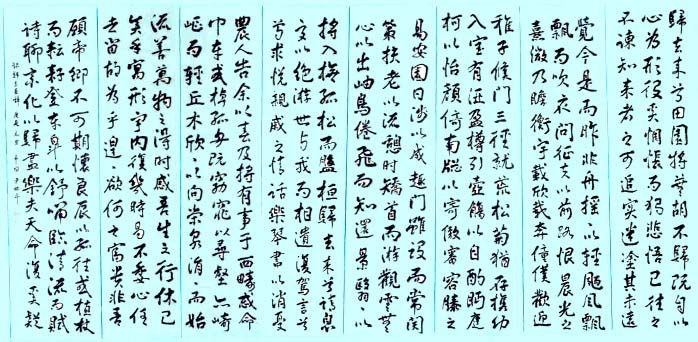 歸去來兮田園將蕪胡不歸既自以
心為形役奚惆悵而獨悲悟已往之
不諫知來者之可追實迷途其未遠
覺今是而昨非舟搖以輕颺風飄
飄而吹衣問征夫以前路恨晨光之
熹微乃瞻衡宇載欣載奔僮僕歡迎
稚子候門三徑就荒松菊猶存攜幼
入室有酒盈樽引壺觴以自酌眄庭
柯以怡顏倚南窗以寄傲審容膝之
易安園日涉以成趣門雖設而常關
策扶老以流憩時矯首而遐觀雲無
心以出岫鳥倦飛而知還景翳翳以
將入撫孤松而盤桓歸去來兮請息
交以絕游世與我而相遺復駕言兮
焉求悅親戚之情話樂琴書以消憂
農人告余以春及將有事于西疇或命
巾車或棹孤舟既窈窕以尋壑亦崎
嶇而經丘木欣欣以向榮泉涓涓而始
流善萬物之得時感吾生之行休已
矣乎寓形宇內復幾時曷不委心任
去留胡為乎遑遑欲何之富貴非吾
願帝鄉不可期懷良辰以孤往或植杖
而耘耔登東皋以舒嘯臨清流而賦
詩聊乘化以歸盡樂夫天命復奚疑